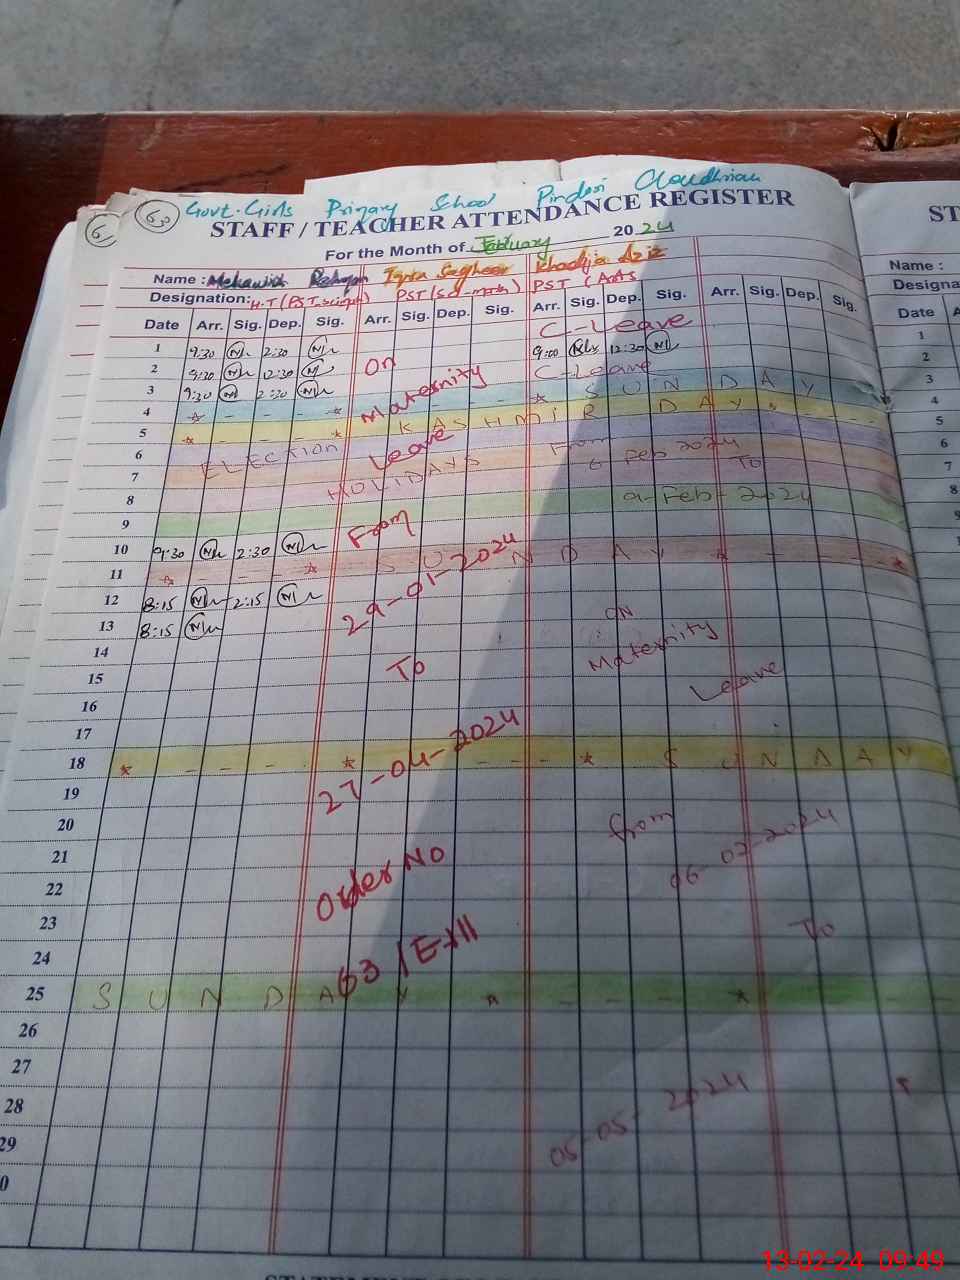 63 Govt. Girls Primary School Pindori Choudhrian
STAFF / TEACHER ATTENDANCE REGISTER
For the Month of February 2024
Name : Iqra Sagheer Khadija Aziz
Designation: H.T (PST, science) PST (Sci-math) PST (Arts
Date Arr. Sig. Dep. Sig. Arr. Sig. Dep. Sig. Arr. Sig. Dep. Sig. Arr. Sig. Dep. Sig.
1 9:30 2:30 C-Leave
2 9:30 12:30 On 9:00 12:30
3 9:30 2:30 Maternity C-Leave
4 * - - - * * S U N D A Y
5 * - - - * K A S H M I R D A Y
6 ELECTION Leave From
7 HOLIDAYS 6 Feb 2024 To
8 9-Feb-2024
9
10 9:30 2:30 From
11 * - - - * S U N D A Y * - - *
12 8:15 2:15 29-01-2024
13 8:15 ON
14 To Maternity
15 Leave
16
17
18 * - - - * - - - * S U N D A Y
19 27-04-2024
20 From
21 06-02-2024
22 Order No
23
24 63 /E-III To
25 S U N D A Y * - - - * - -
26
27
28 05-05-2024
29
0
ST
Name :
Designa
Date A
1
2
3
4
5
6
7
8
9
13-02-24 09:49